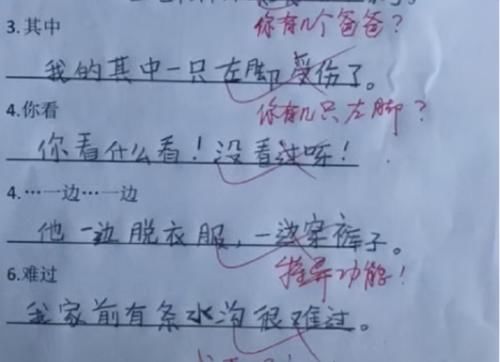 3.其中
你有几个爸爸？
我的其中一只左脚受伤了。
4.你看
你有几只左脚？
你看什么看！没看过呀！
4.…一边…一边
他一边脱衣服，一边穿裤子。
6.难过
特异功能！
我家前有条水沟很难过。